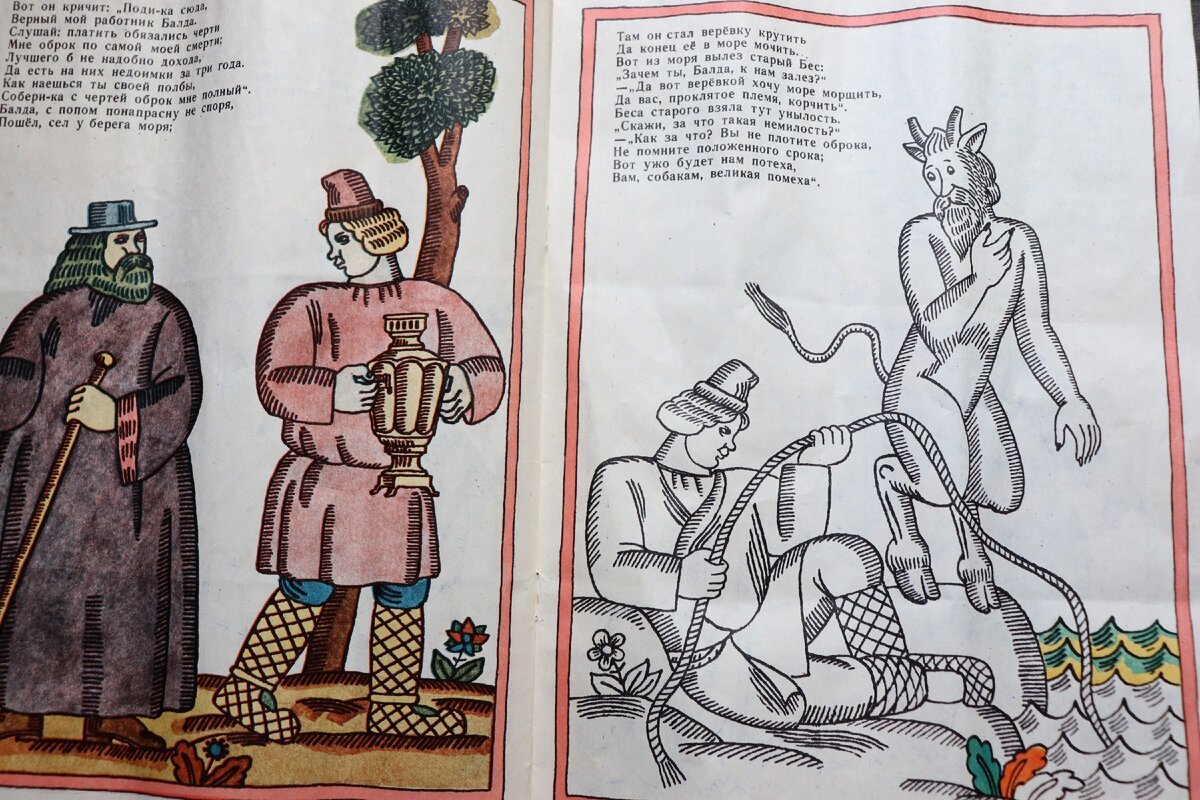 Вот он кричит: „Поди-ка сюда,
Верный мой работник Балда.
Слушай: платить обязались черти
Мне оброк по самой моей смерти;
Лучшего б не надобно дохода,
Да есть на них недоимки за три года.
Как наешься ты своей полбы,
Собери-ка с чертей оброк мне полный“.
Балда, с попом понапрасну не споря,
Пошёл, сел у берега моря;
Там он стал верёвку крутить
Да конец её в море мочить.
Вот из моря вылез старый Бес:
„Зачем ты, Балда, к нам залез?“
—„Да вот верёвкой хочу море морщить,
Да вас, проклятое племя, корчить“.
Беса старого взяла тут унылость.
„Скажи, за что такая немилость?“
—„Как за что? Вы не плотите оброка,
Не помните положенного срока;
Вот ужо будет нам потеха,
Вам, собакам, великая помеха“.